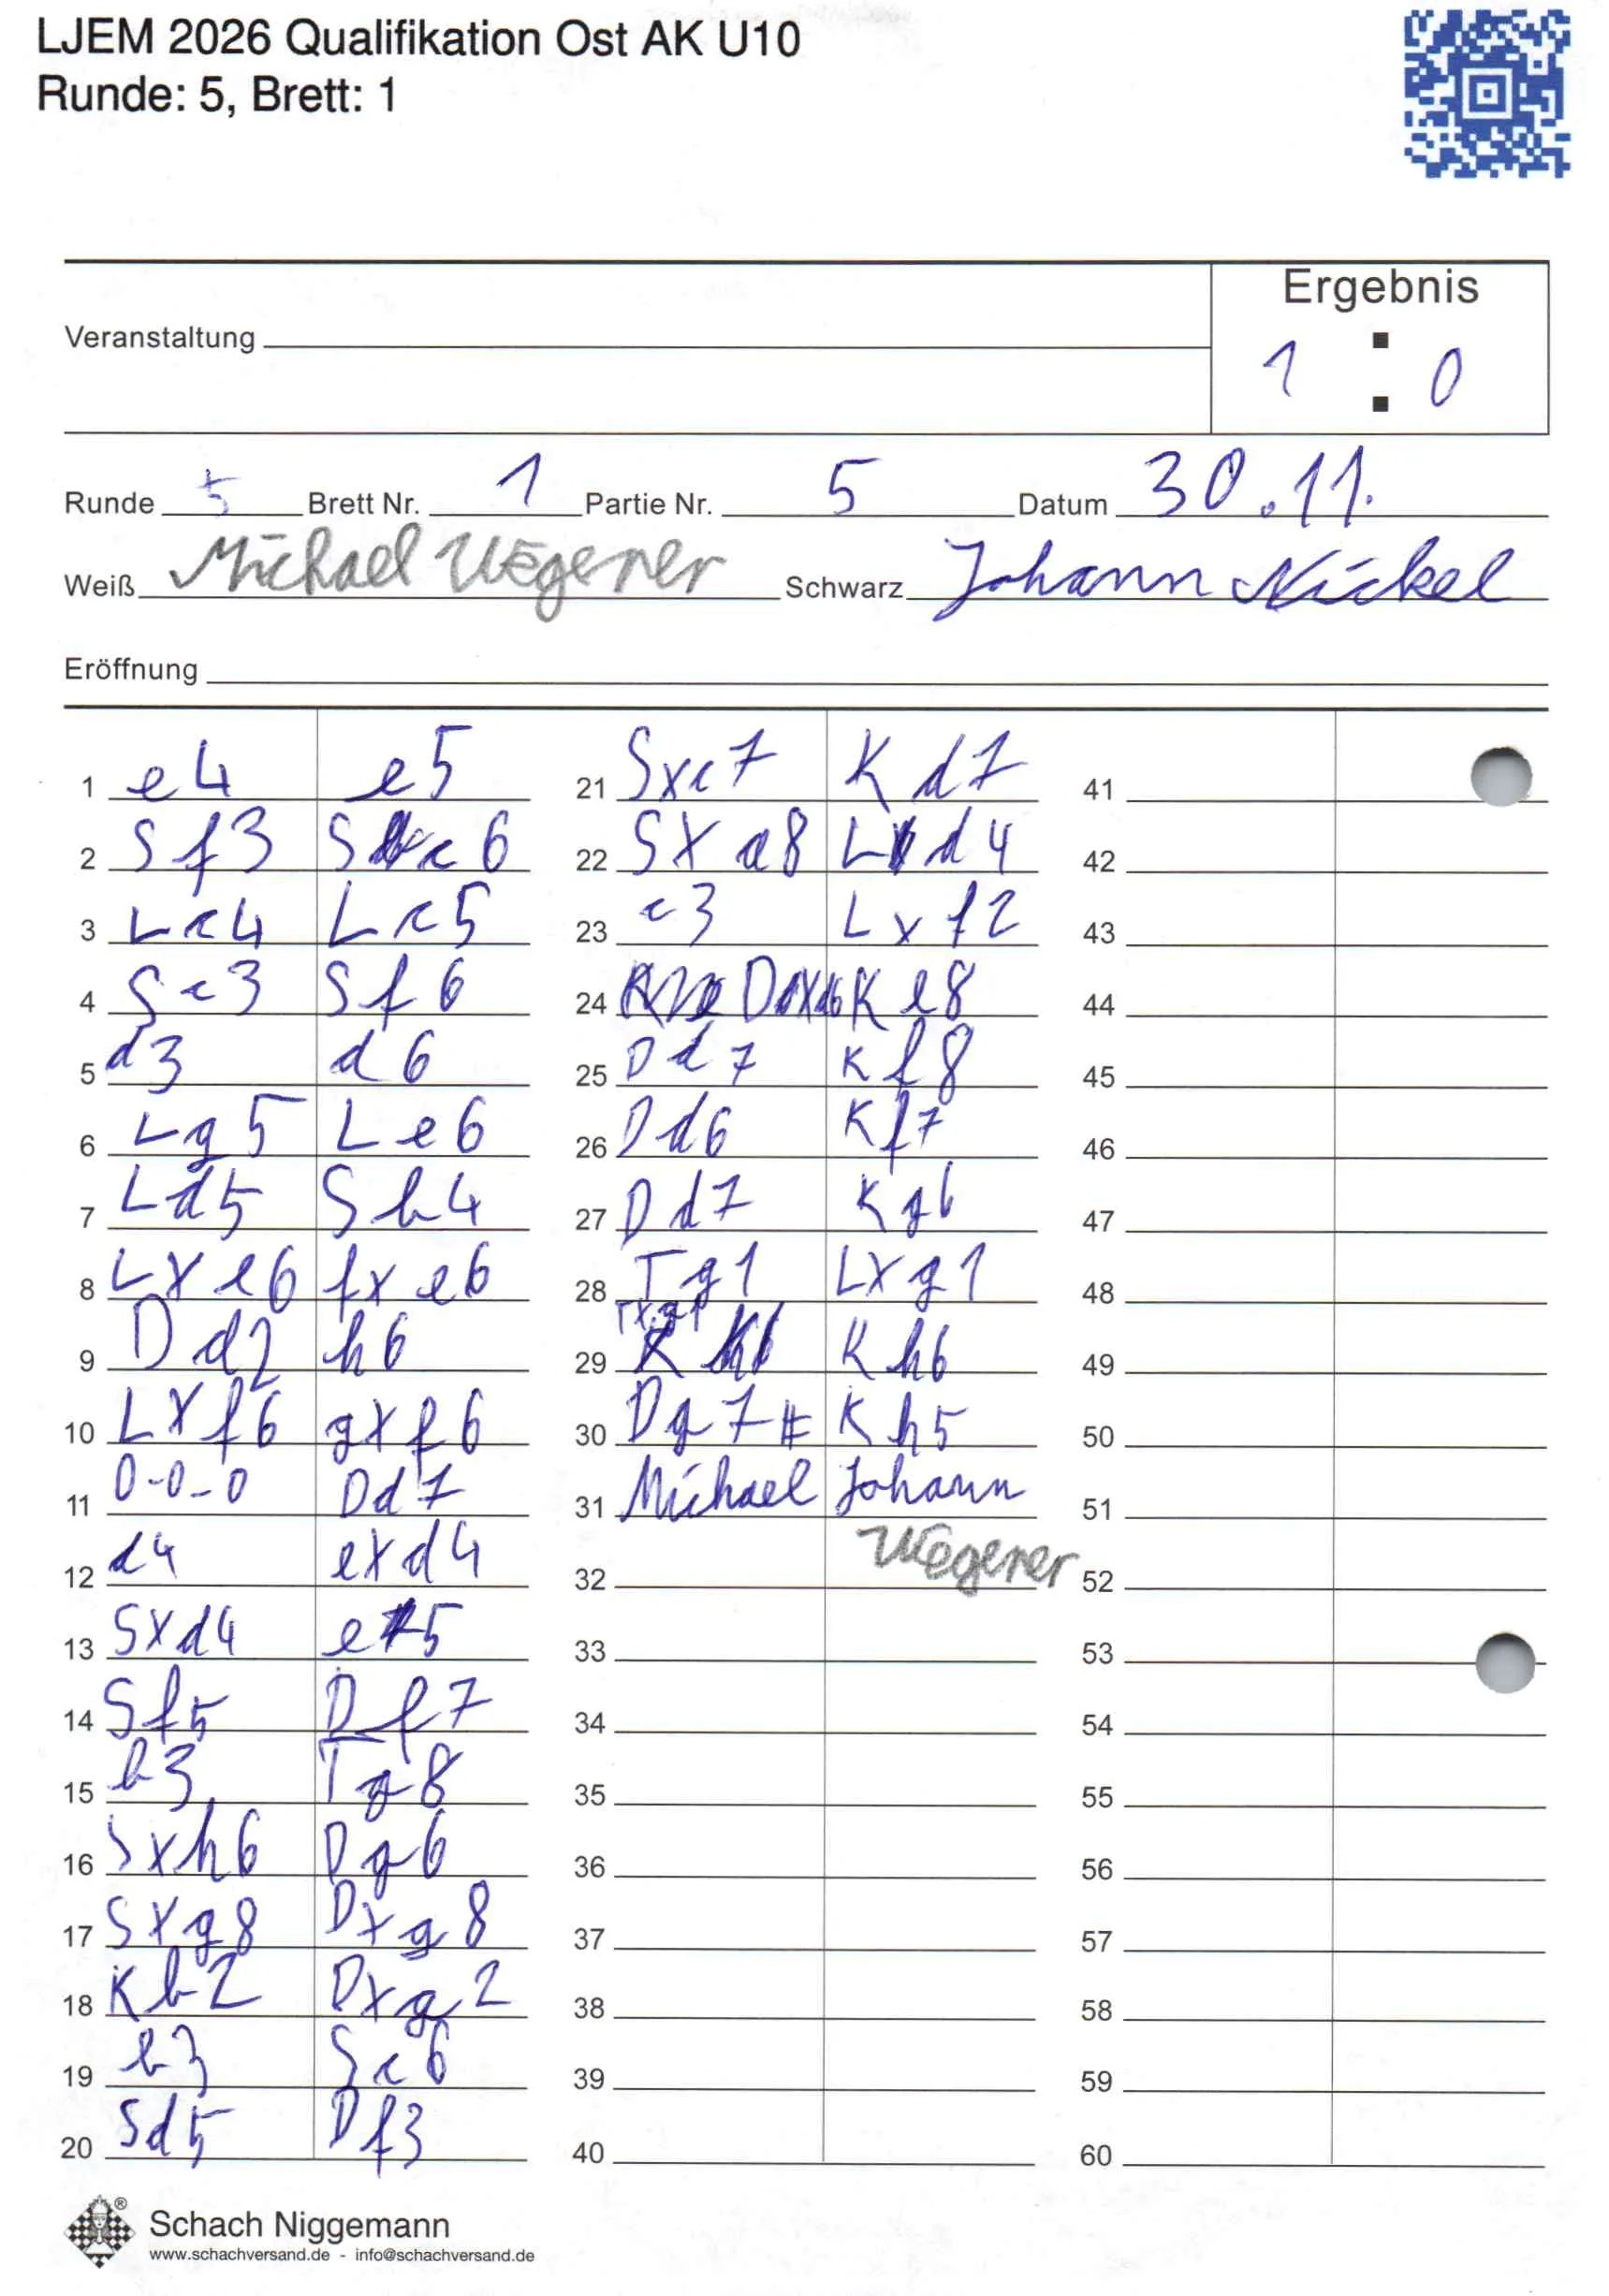 LJEM 2026 Qualifikation Ost AK U10
Runde: 5, Brett: 1
Ergebnis
1 : 0
Veranstaltung
Runde 5 Brett Nr. 1 Partie Nr. 5 Datum 30.11.
Weiß Michael Wegener Schwarz Johann Nickel
Eröffnung
1 e4 e5
2 Sf3 Sc6
3 Lc4 Lc5
4 Sc3 Sf6
5 d3 d6
6 Lg5 Le6
7 Ld5 Sb4
8 Lxe6 fxe6
9 Dd2 h6
10 Lxf6 gxf6
11 0-0-0 Dd7
12 d4 exd4
13 Sxd4 e5
14 Sf5 Df7
15 b3 Tg8
16 Sxh6 Dg6
17 Sxg8 Dxg8
18 Kb2 Dxg2
19 b3 Sc6
20 Sd5 Df3
21 Sxc7 Kd7
22 Sxa8 Ld4
23 c3 Lxf2
24 Dxd6 Ke8
25 Dd7 Kf8
26 Dd6 Kf7
27 Dd7 Kg6
28 Tg1 Lxg1
29 Txg1 Kh6
30 Dg7# Kh5
31 Michael Johann
32 Wegener
33
34
35
36
37
38
39
40
41
42
43
44
45
46
47
48
49
50
51
52
53
54
55
56
57
58
59
60
®
Schach Niggemann
www.schachversand.de - info@schachversand.de